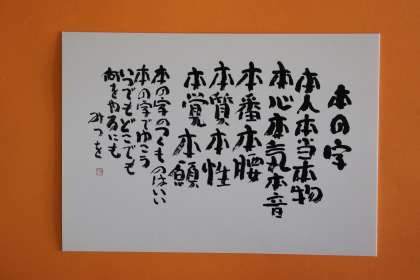 本の字
本人本当本物
本心本気本音
本番本腰
本質本性
本覚本願
本の字のつくものはいい
本の字でゆこう
いつでもどこでも
何をやるにも
みつを